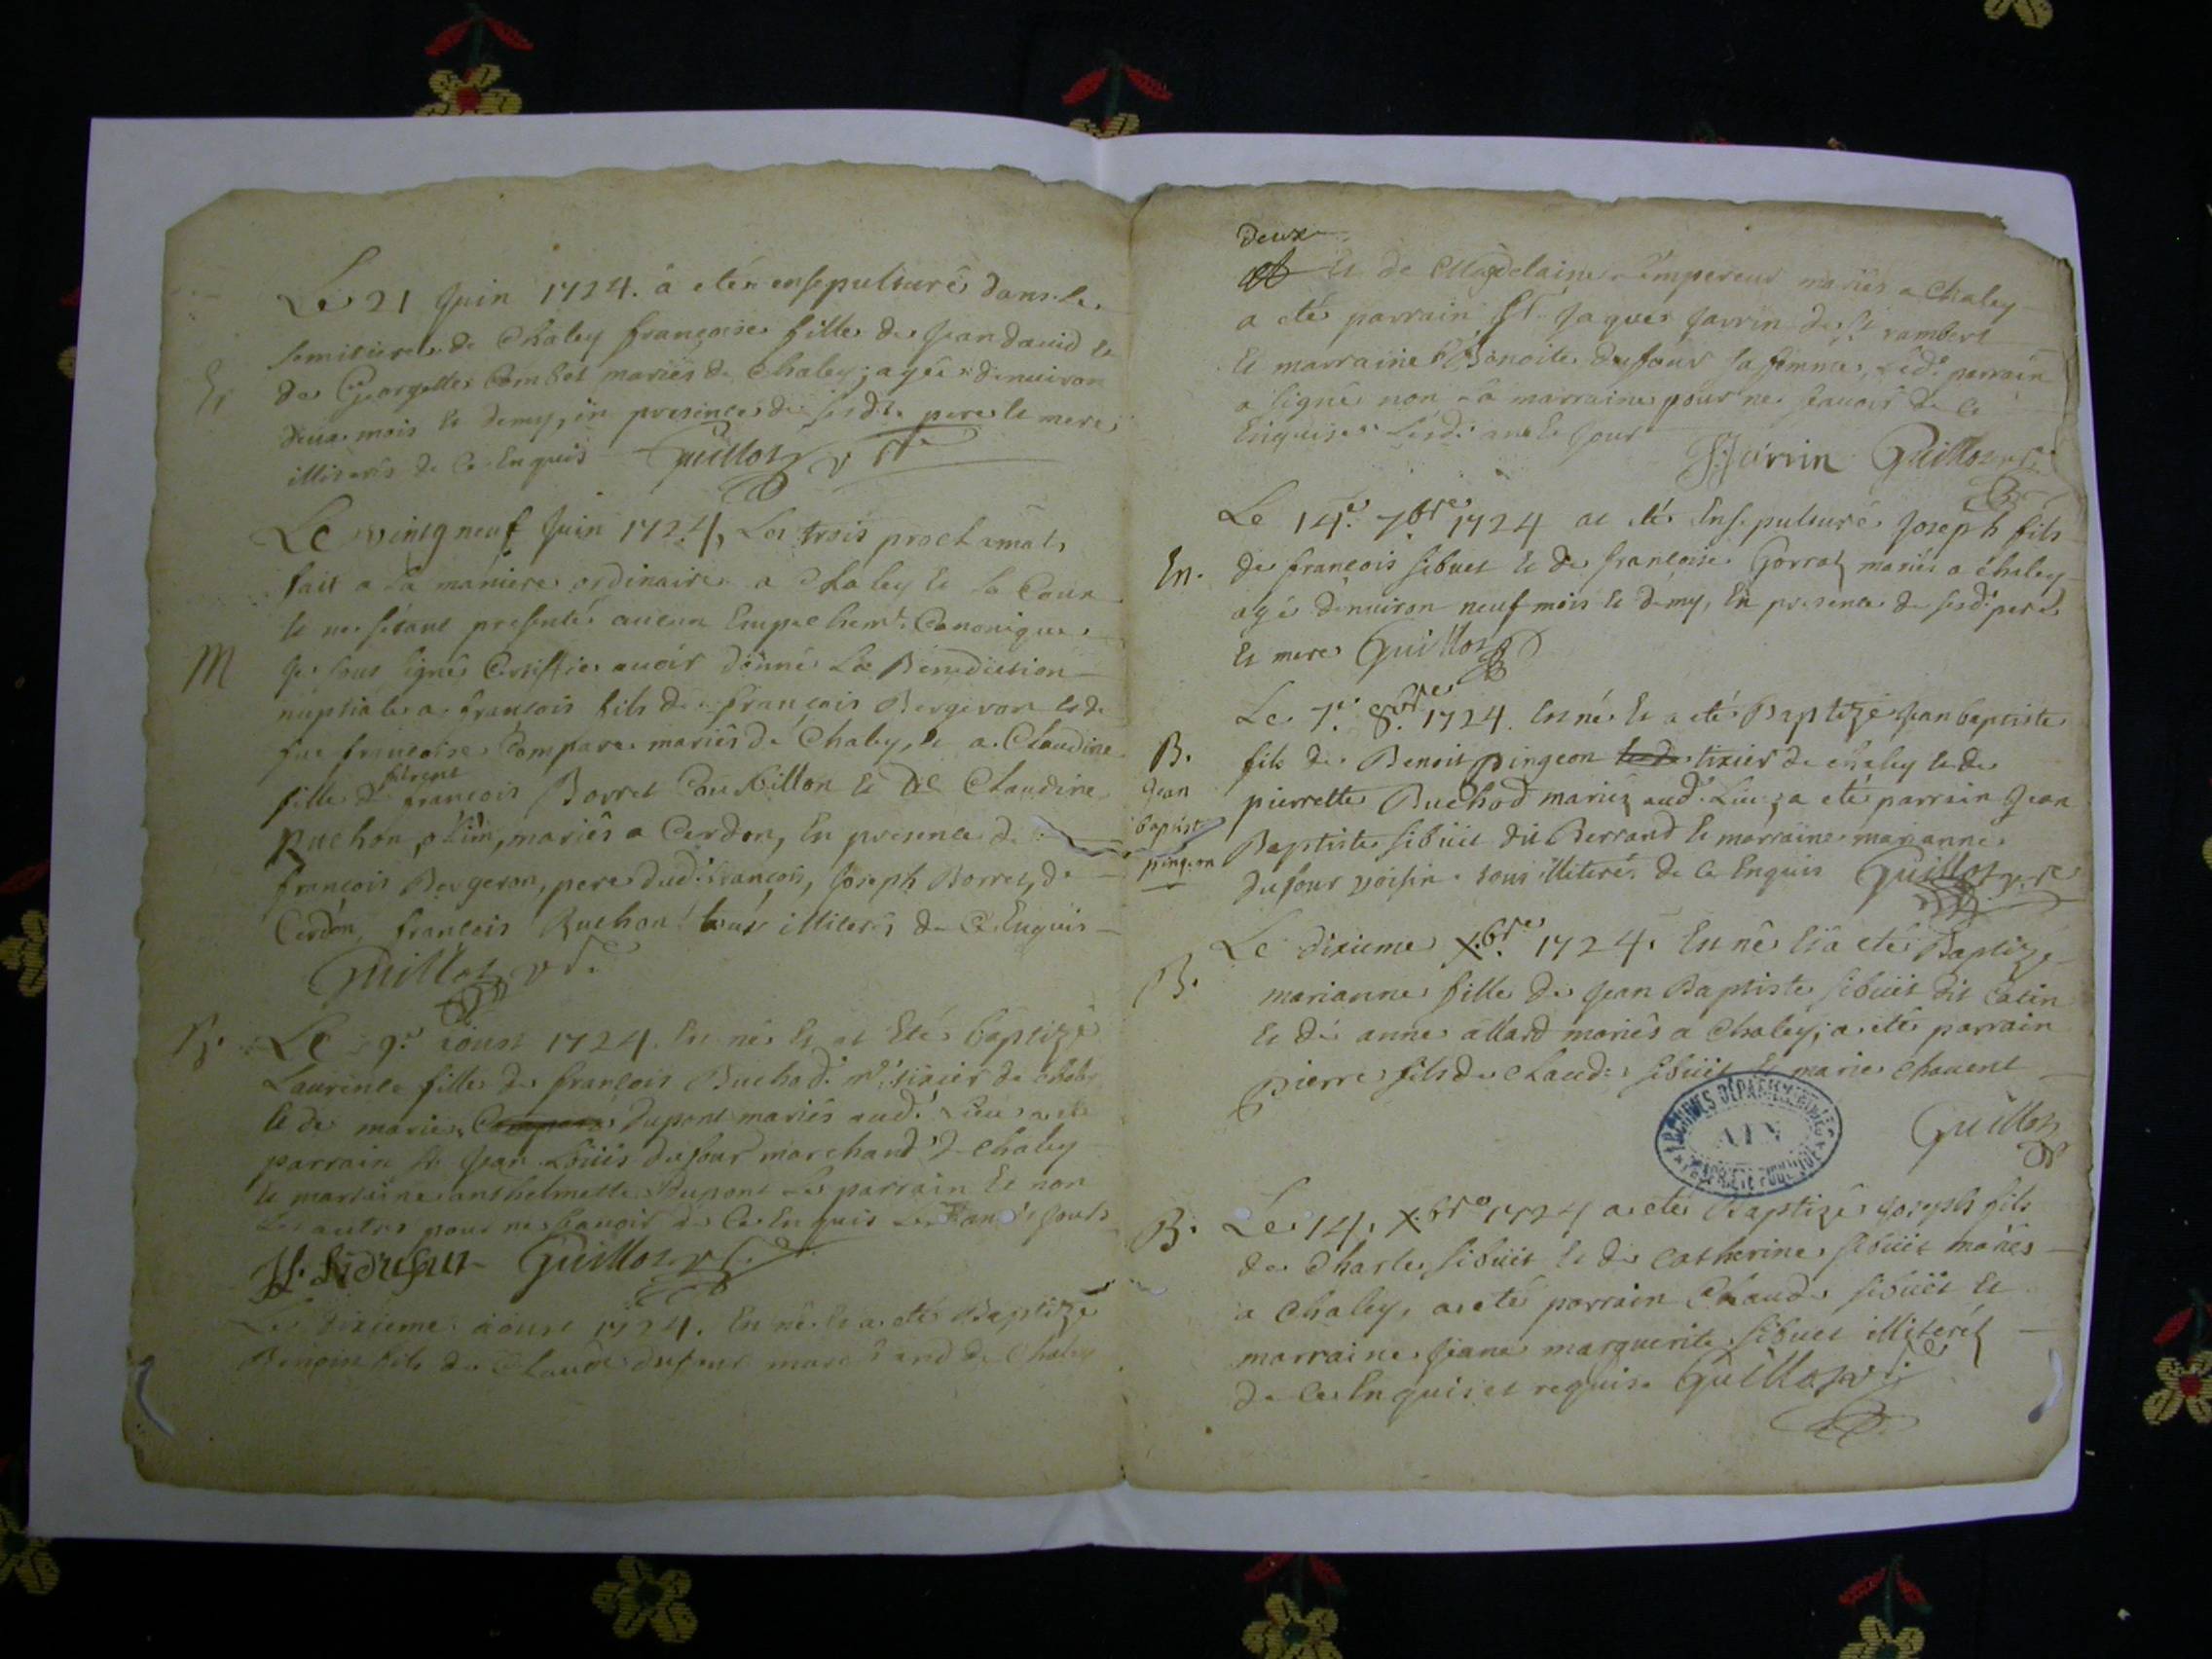 Le 21 Juin 1724. à eté ensepulturé dans le
semitiere de Chaley françoise fille de Jean dauid et
de Georgette Combet mariés de Chaley; agée denuiron
deux mois et demy, en presence de sesdts. pere et mere
illiterés de ce Enquis Guillot v
Le vintg neuf Juin 1724, Les trois proclamats
fait a la maniere ordinaire a Chaley et la Coux
et ne sétant presenté aucun Empechemt. Canonique
M Je sous signé Certiffie auoir donné La Bénédiction
nuptiale a françois fils de françois Bergeron et de
fue françoise Compare mariés de Chaley, et a Claudine
fille de françois Borret Courbillon et de Claudine
Ruchon, olim, mariés a Cerdon, En presence de
françois Bergeron, pere dud. françois, Joseph Borret, de
Cerdon, françois Ruchon tous illiterés de Ce Enquis
Guillot
B. Le 9e. aoust 1724. En né Et at Eté baptizé
Laurence fille de françois Buchod me. tixier de chaley
et de marie dupont mariés aud. Lieu a eté
parrain sr Jean Loüis dufour marchand de chaley
et marraine anthelmette Dupont Le parrain Et non
Les autres pour ne sçauoir de Ce Enquis Les an et jours
Guillot
Le dixieme aoust 1724. En né Et a eté Baptizé
Benoist fils de Claude dufour marchand de Chaley
Deux
Et de Magdelaine Lempereur mariés a Chaley
a eté parrain Sr. Jaques Jarrin de St rambert
Et marraine Benoite dufour sa femme, Led. parrain
a signé non La marraine pour ne sçauoir de Ce
Enquise Lesd. an et Jour
J Jarrin Guillot
Le 14e. 7bre 1724 at eté Ensepulturé Joseph fils
En. de françois sibuet Et de françoise Gorrat mariés a chaley
agé denuiron neuf mois Et demy, En presence de sesd. pere
Et mere Guillot
Le 7e. 8bre 1724. En né Et a eté Baptizé Jean baptiste
B. fils de Benoit pingeon tixier de chaley et de
Jean pierrette Buchod mariez aud. Lieu; a eté parrain Jean
baptiste Baptiste sibüit dit Berrand Et marraine marianne
pingeon dufour voisin tous illiterés de Ce Enquis Guillot
Le dixieme Xbre 1724. En né Et a eté Baptizé
B. marianne fille de Jean Baptiste sibüit dit Catin
Et de anne allard mariés a Chaley; a eté parrain
pierre fils de claude sibüit Et marie chauent
ARCHIVES DÉPARTEMENTALES
AIN
PROPRIÉTÉ PUBLIQUE
Guillot
B. Le 14. Xbre 1724 a eté Baptizé Joseph fils
de Charle sibüit Et de Catherine sibüit mariés
a Chaley, a eté parrain Claude sibüit Et
marraine Jeane marguerite sibuet illiteréz
de Ce Enquis et requis. Guillot